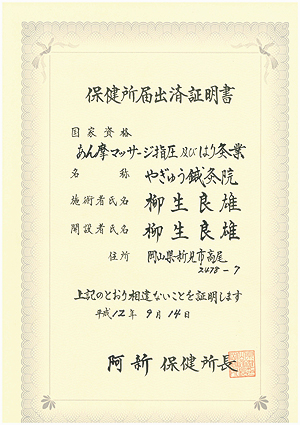 保健所届出済証明書
国家資格
あん摩マッサージ指圧及びはり灸業
名称 やぎゅう鍼灸院
施術者氏名 柳生良雄
開設者氏名 柳生良雄
住所 岡山県新見市高尾
2478-7
上記のとおり相違ないことを証明します
平成12年9月14日
阿新保健所長